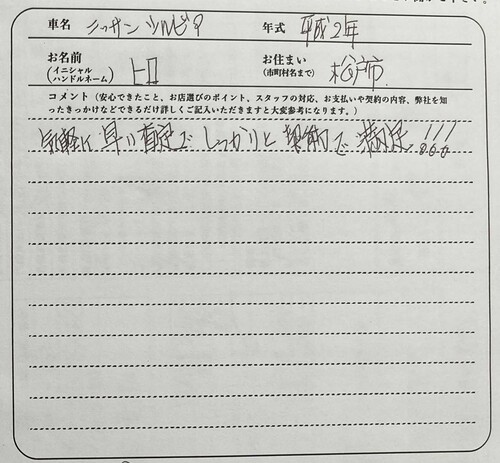 車名 ニッサン シルビア 年式 平成2年
お名前 (イニシャル ハンドルネーム) ヒロ お住まい (市町村名まで) 松戸市
コメント（安心できたこと、お店選びのポイント、スタッフの対応、お支払いや契約の内容、弊社を知
ったきっかけなどできるだけ詳しくご記入いただきますと大変参考になります。）
気軽に早い査定でしっかりと契約で満足!!!